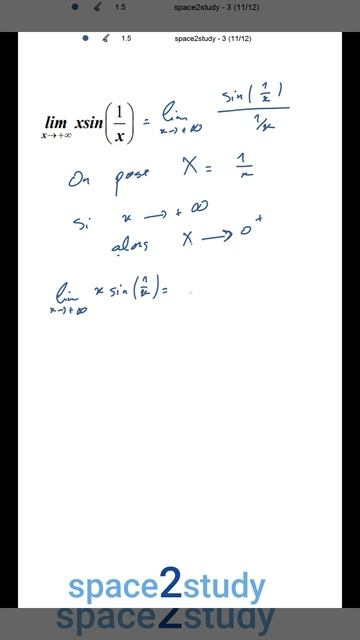 1.5 space2study - 3 (11/12)
1.5 space2study - 3 (11/12)
lim x→+∞ xsin(1/x) = lim x→+∞ sin(1/x)/1/x
On pose X = 1/x
si x → +∞
alors X → 0⁺
lim x→+∞ x sin(1/x) =
space2study
space2study